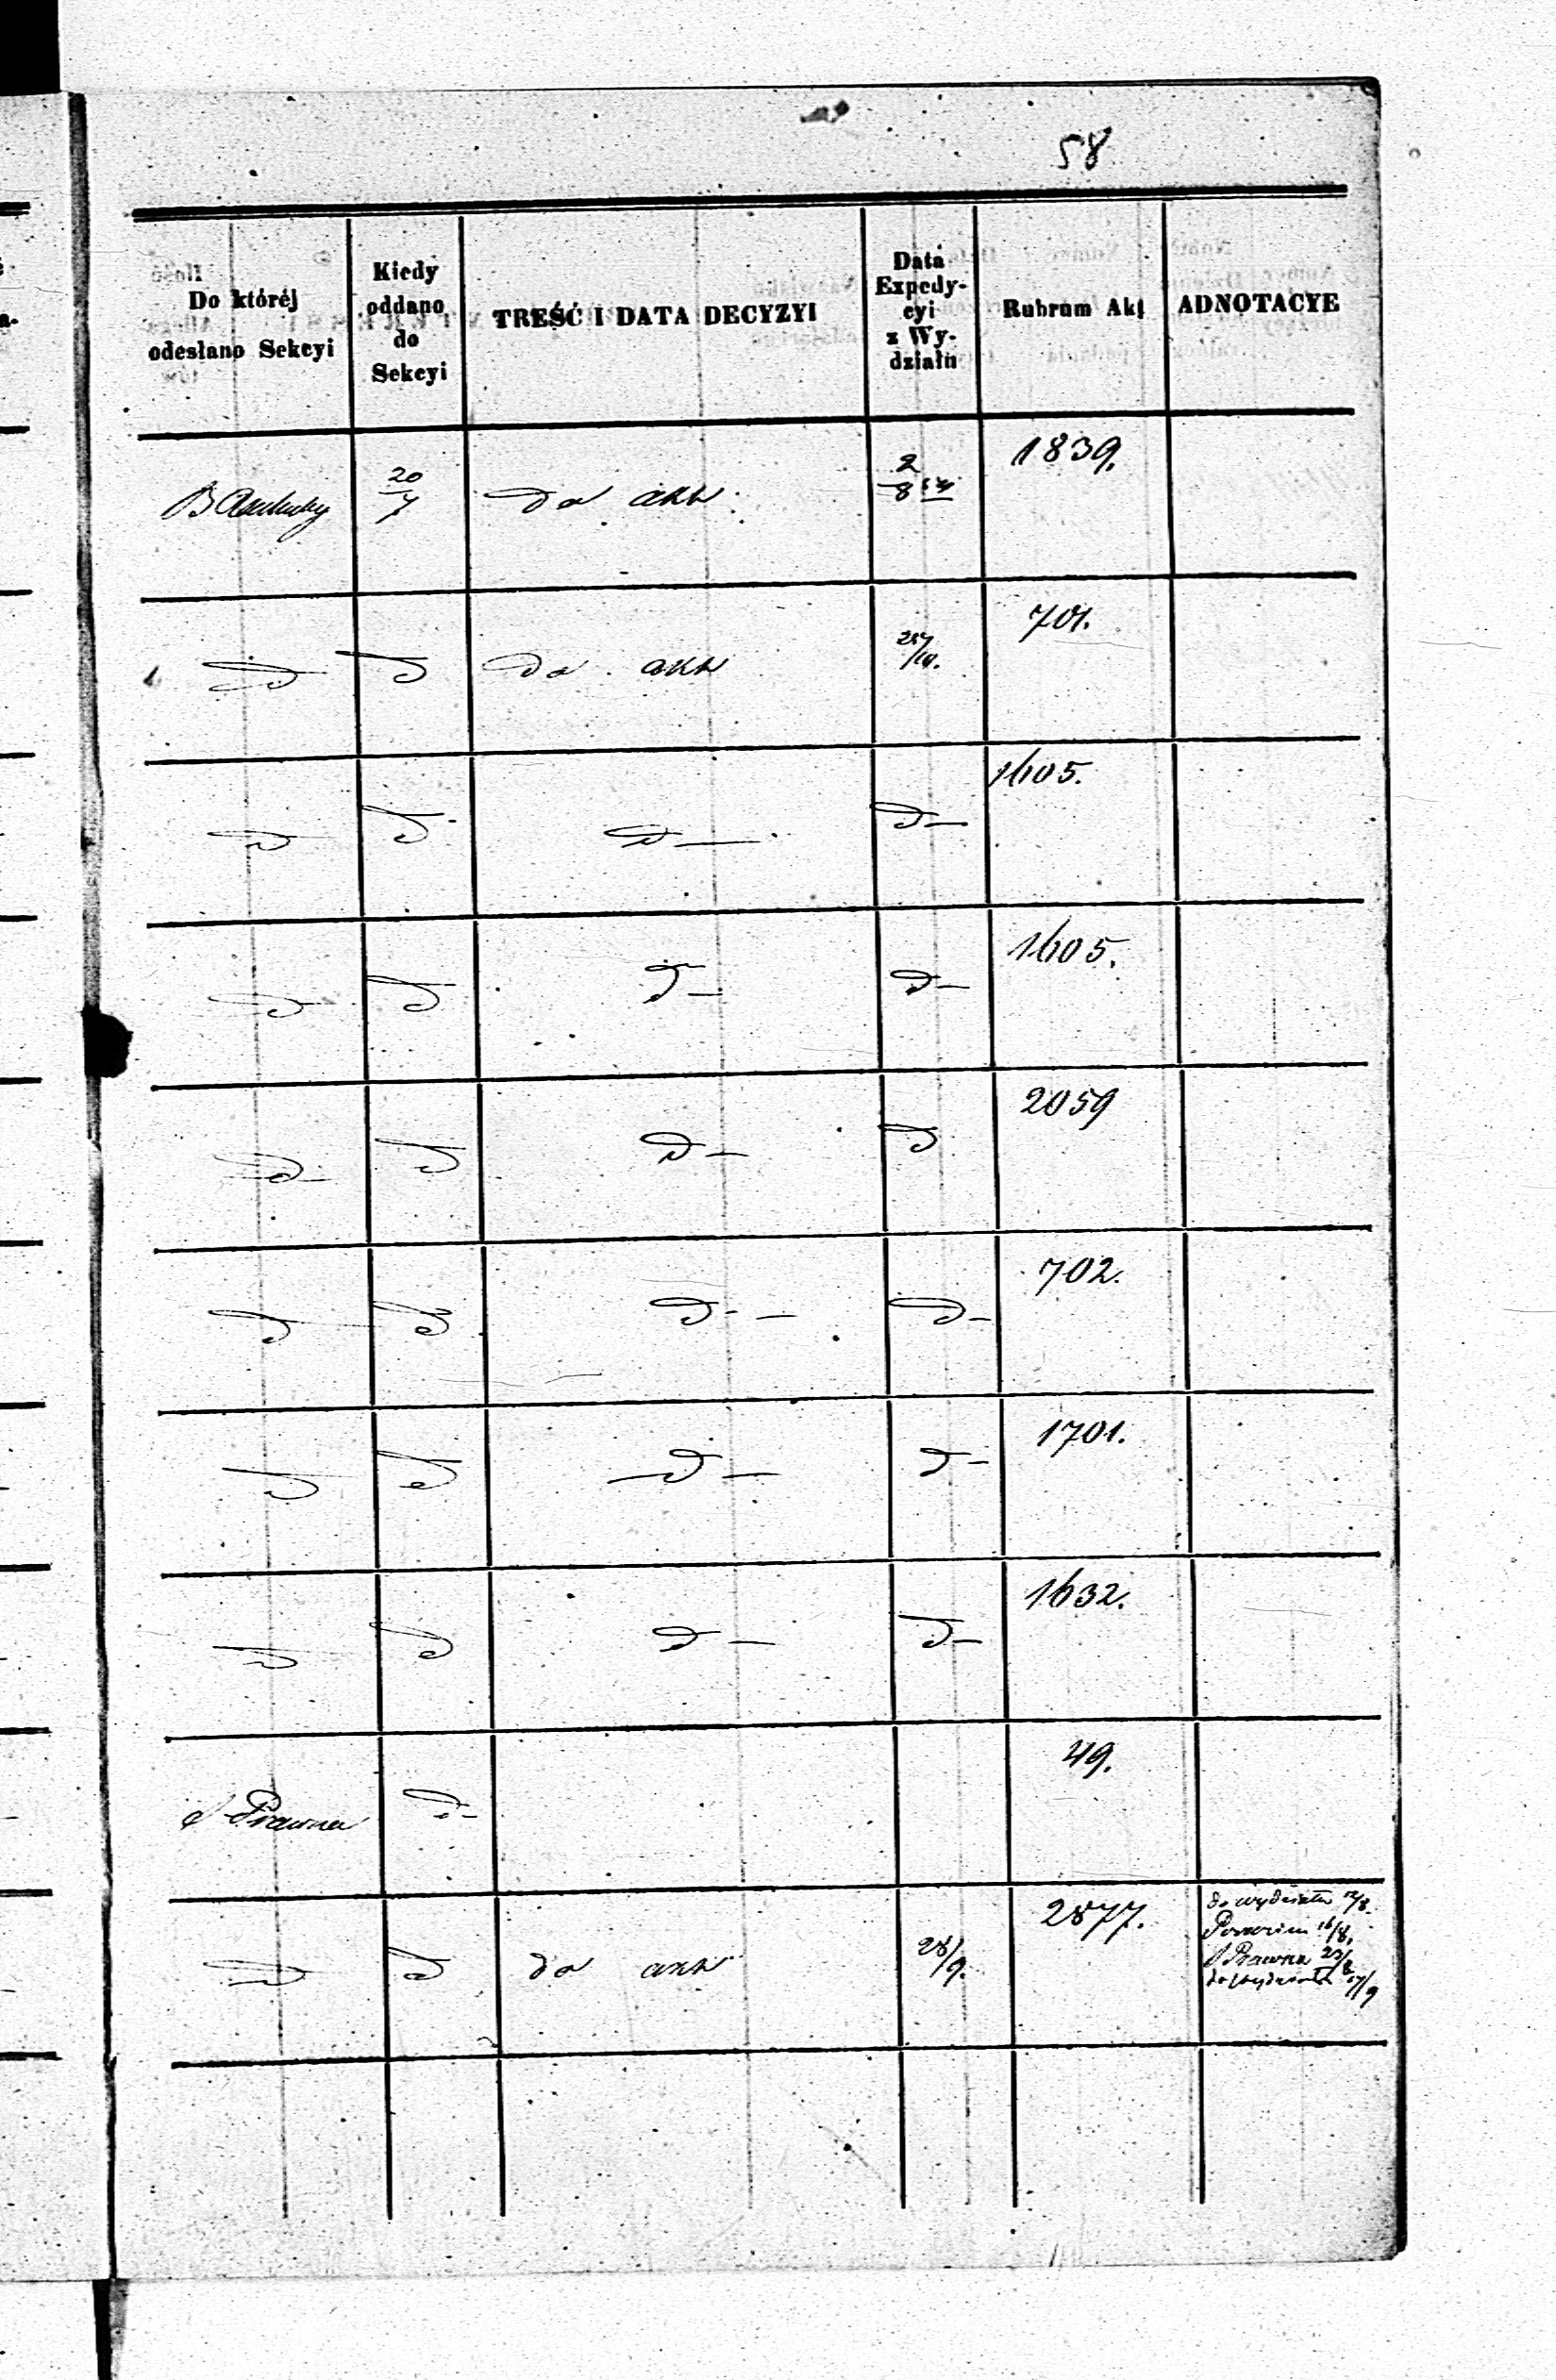 58
Do któréj
odesłano Sekcyi
Kiedy
oddano
do
Sekcyi
TREŚĆ I DATA DECYZYI
Data
Expedy-
cyi
z Wy-
działu
Rubrum Akt
ADNOTACYE
20/7 do akt 2/8 1839.
D D do akt 701.
D D D D 1605.
D D D D 1605.
D D D D 2059
D D D D 702.
D D D D 1701.
D D D D 1632.
S Prawna D 49.
D D do akt 28/9. 2877.
do wydziału 12/8.
16/8.
S Prawna 22/8
do wydziału 17/9